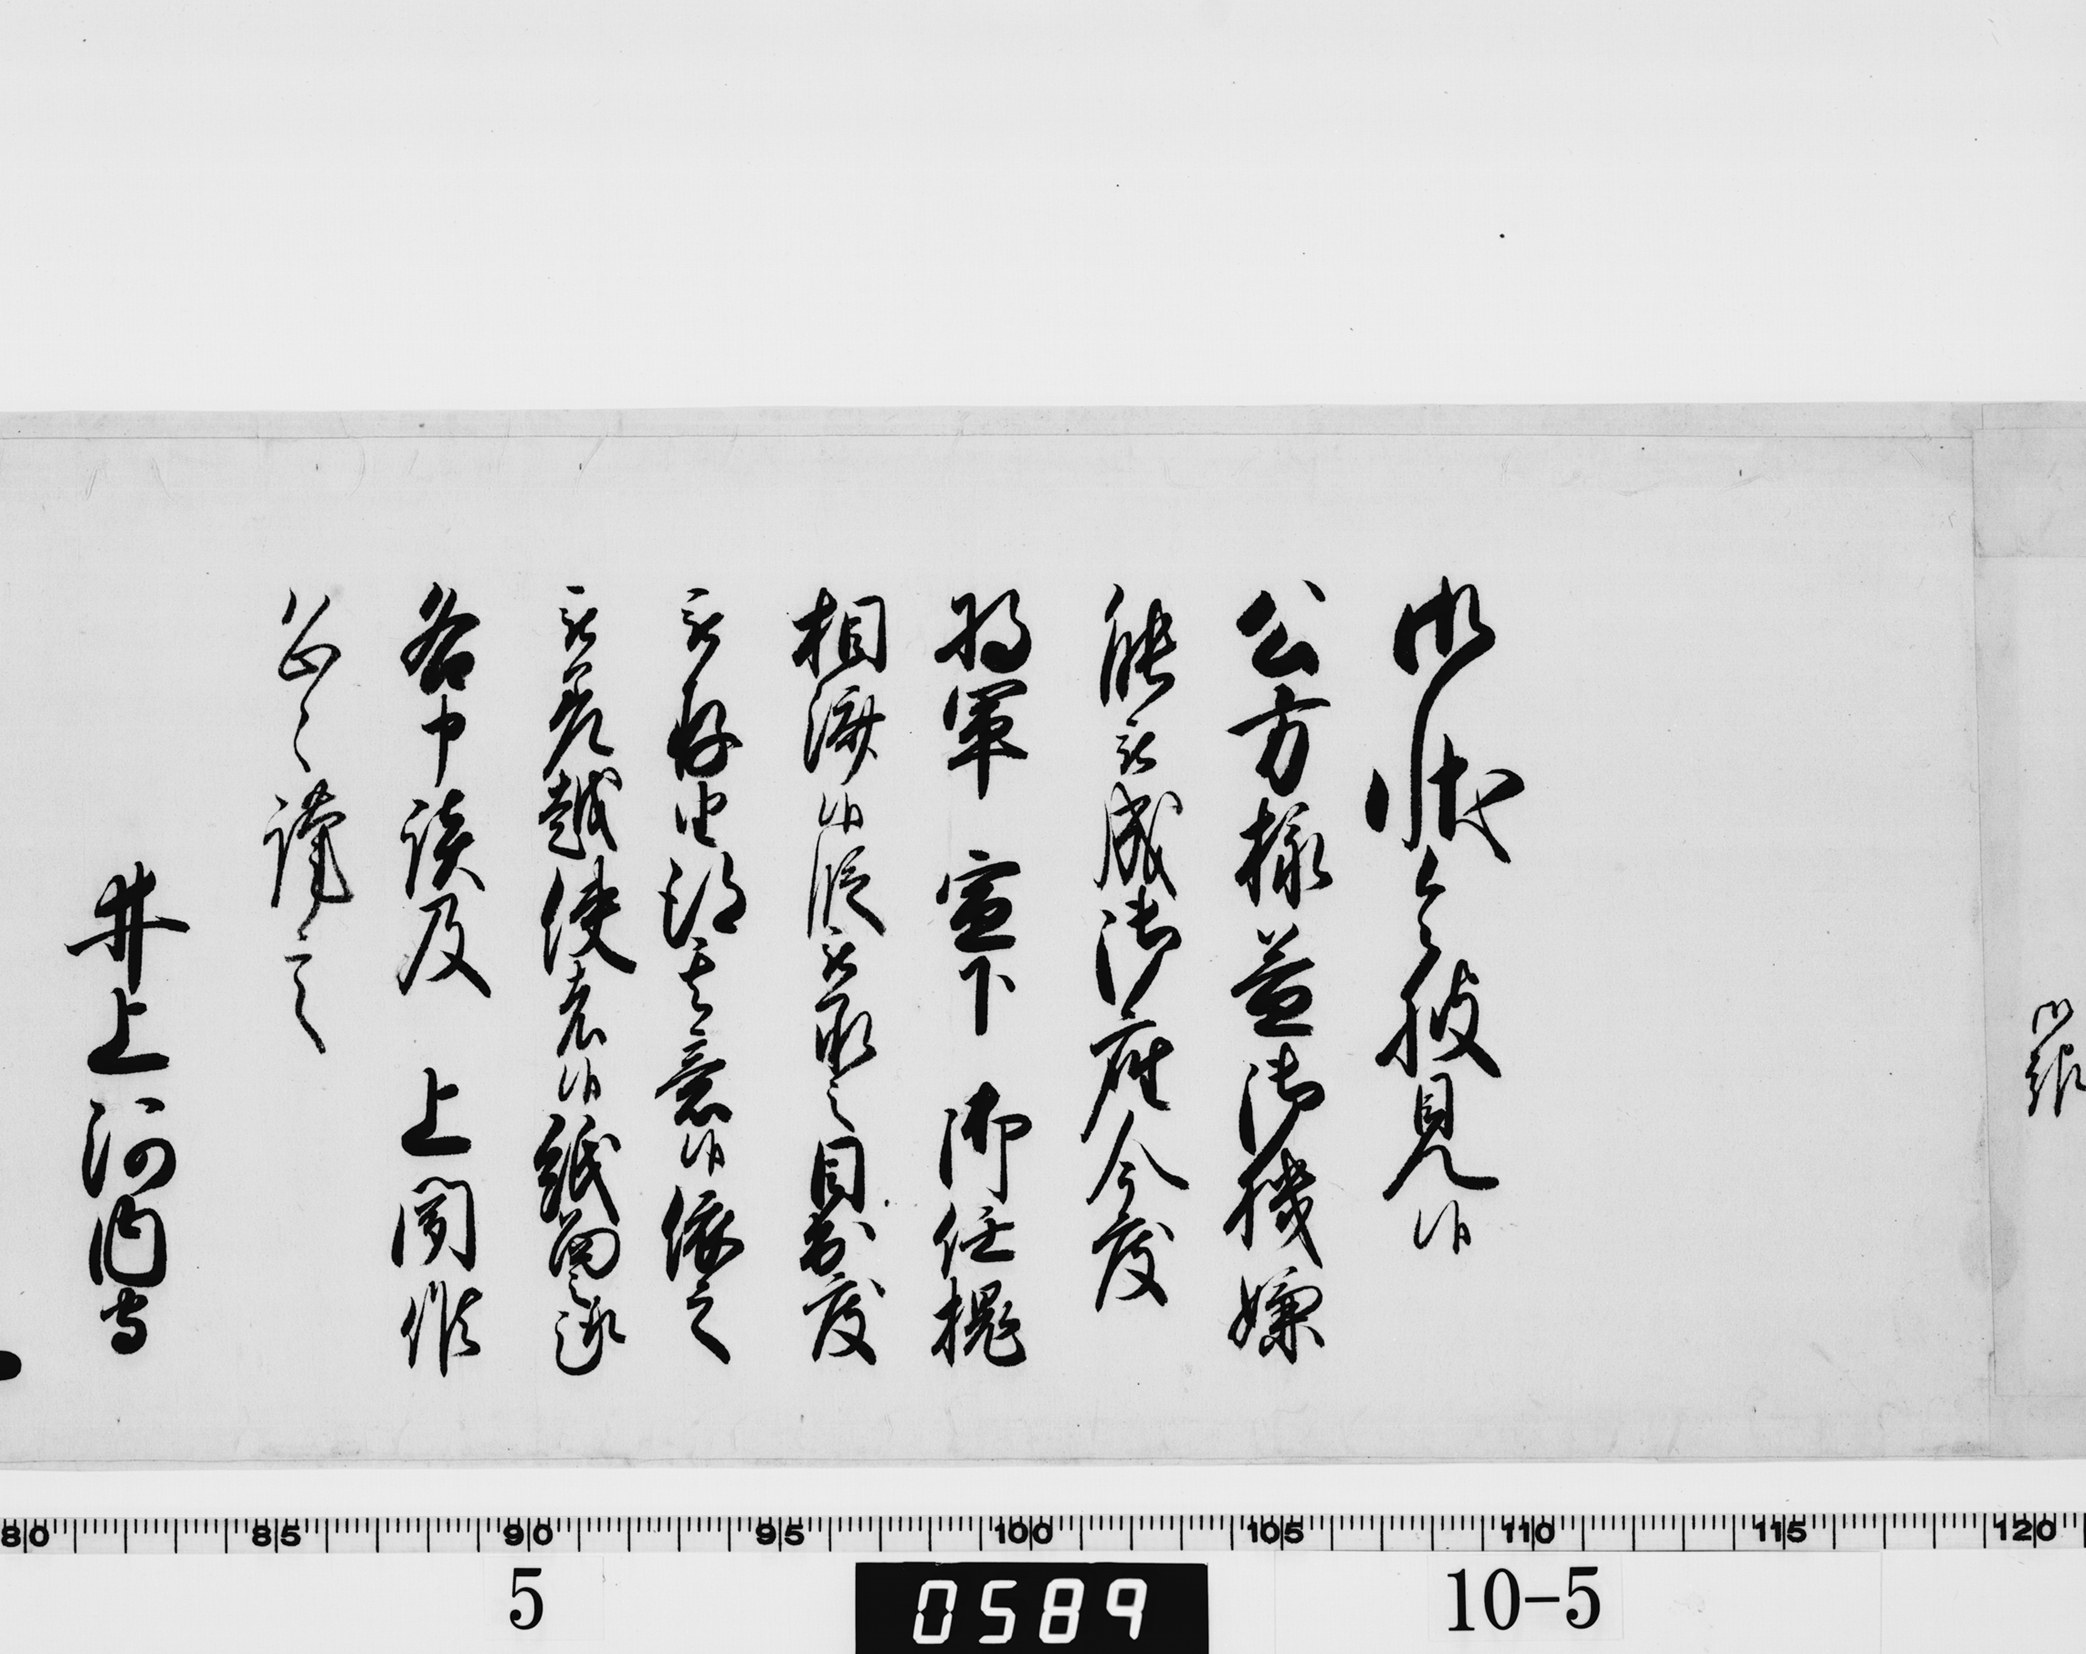 御状令披見候
公方様益御機嫌
能被成御座今度
将軍 宣下 御任槐
相済候段被承之目出度
被存由得其意候依之
被差越使者候紙面之趣
各申談及 上聞候
恐々謹言
井上河内守
80 85 90 95 100 105 110 115 120
5 0589 10-5